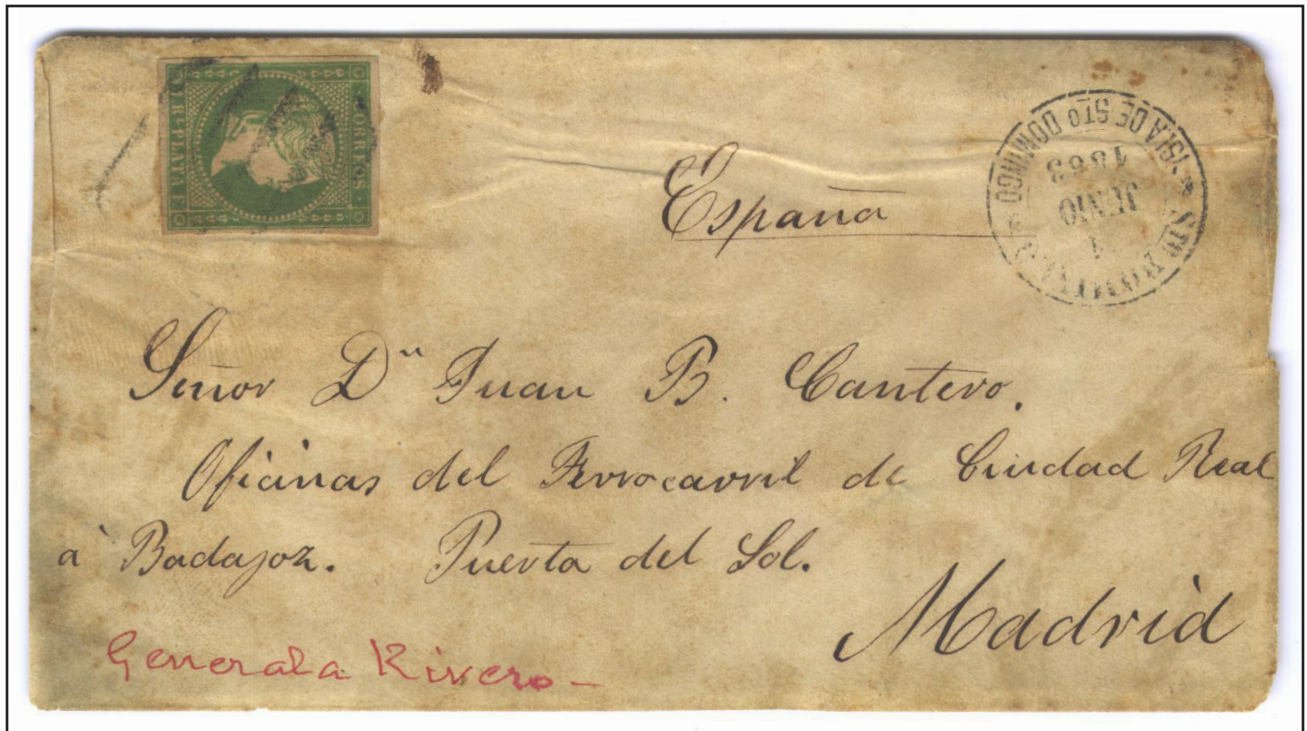 CORREOS
PLATA F.
España
ISLA DE STO DOMINGO
STO DOMINGO
JUNIO
1863
Señor Dn Juan B. Cantero.
Oficinas del Ferrocarril de Ciudad Real
à Badajoz. Puerta del Sol.
Madrid
Generala Rivero -